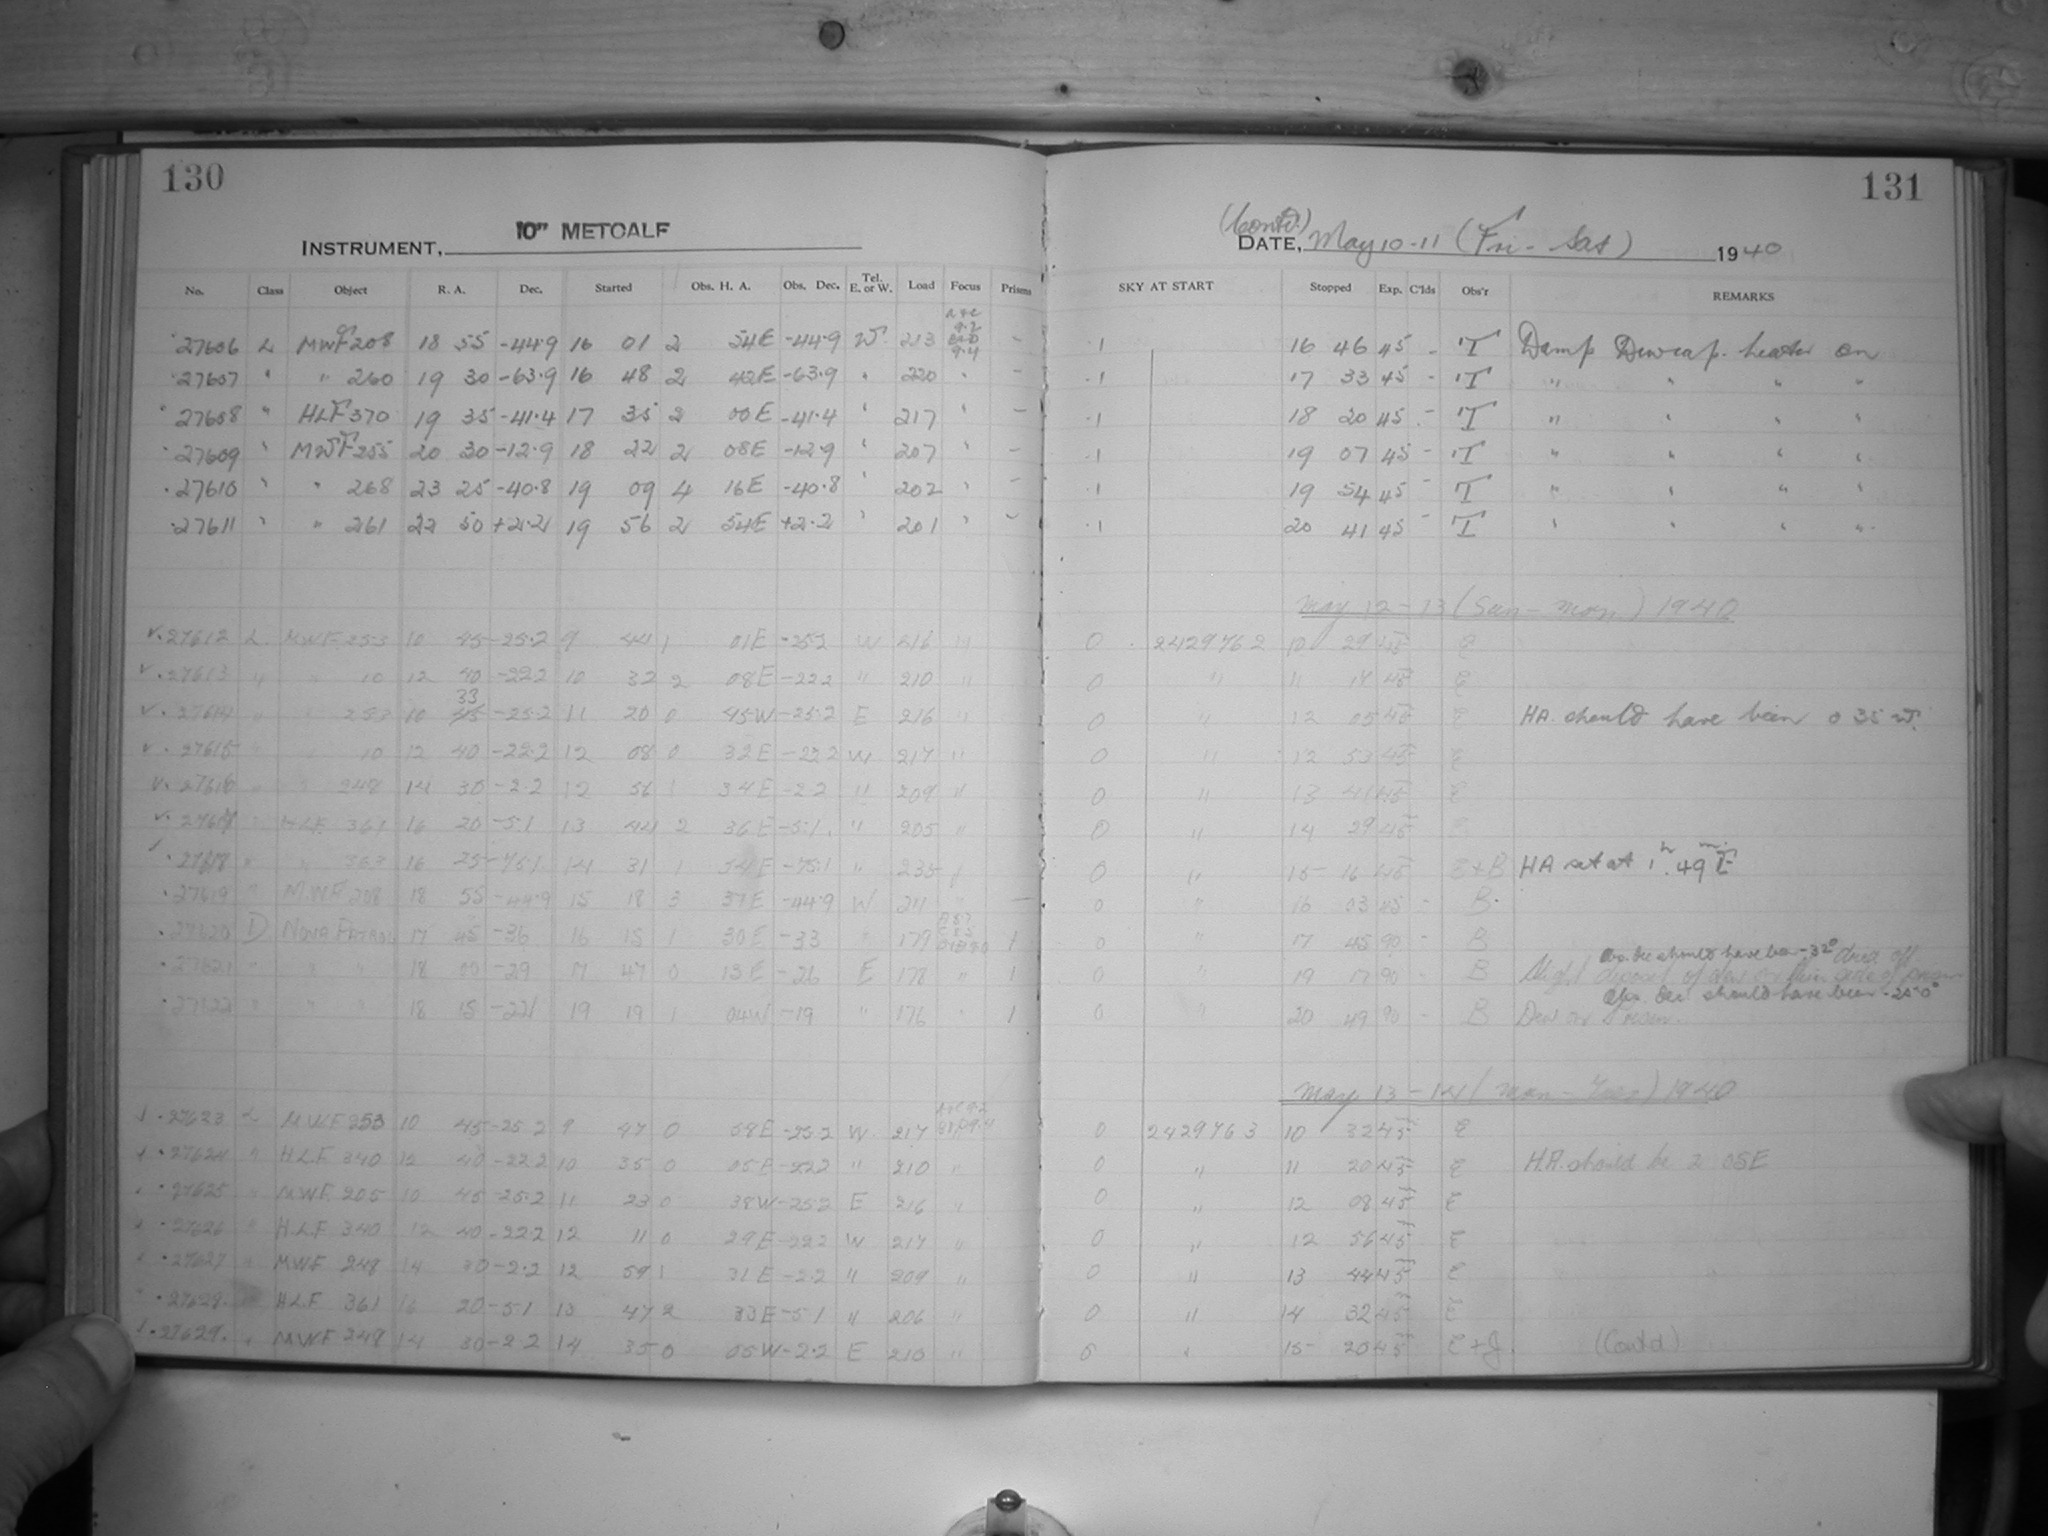 130
131
INSTRUMENT, 10" METCALF
(Contd.)
DATE, May 10-11 (Fri - Sat) 1940
No. Class Object R. A. Dec. Started Obs. H. A. Obs. Dec. Tel. E. or W. Load Focus Prisms SKY AT START Stopped Exp. C'lds Obs'r REMARKS
27606 L MWF 208 18 55 -44.9 16 01 2 54E -44.9 W 213 - .1 16 46 45 - T Damp Dewcap heater on
27607 " " 260 19 30 -63.9 16 48 2 42E -63.9 " 220 " - .1 17 33 45 - T " " " "
27608 " HLF 370 19 35 -41.4 17 35 2 00E -41.4 " 217 " - .1 18 20 45 - T " " " "
27609 " MWF 255 20 30 -12.9 18 22 2 08E -12.9 " 207 " - .1 19 07 45 - T " " " "
27610 " " 268 23 25 -40.8 19 09 4 16E -40.8 " 202 " - .1 19 54 45 - T " " " "
27611 " " 261 22 50 +2.2 19 56 2 54E +2.2 " 201 " - .1 20 41 45 - T " " " "
May 12-13 (Sun - Mon.) 1940
27612 L MWF 253 10 45 -25.2 9 44 1 01E -25.2 W 216 " 0 2429762 10 29 45
27613 " " 10 12 40 -22.2 10 32 2 08E -22.2 " 210 " 0 " 11 17 45
33
27614 " " 253 10 45 -25.2 11 20 0 45W -25.2 E 216 " 0 " 12 05 45 HA. should have been 0 35 W.
27615 " " 10 12 40 -22.2 12 08 0 32E -22.2 W 217 " 0 " 12 53 45
27616 " " 248 14 30 -2.2 12 56 1 34E -2.2 " 209 " 0 " 13 41 45
27617 " HLF 361 16 20 -5.1 13 44 2 36E -5.1 " 205 " 0 " 14 29 45
27618 " " 363 16 25 -75.1 14 31 1 54E -75.1 " 235 " 0 " 15 16 45 HA set at 1h 49m E
27619 " M.W.F. 208 18 55 -44.9 15 18 3 37E -44.9 W 211 - 0 " 16 03 45 - B.
27620 D NOVA PATROL 17 45 -36 16 15 1 30E -33 " 179 1 0 " 17 45 90 - B
27621 " " " 18 00 -29 17 47 0 13E -26 E 178 " 1 0 " 19 17 90 - B Obs. Dec should have been -32°
Slight deposit of dew
27622 " " " 18 15 -22 19 19 1 04W -19 " 176 " 1 0 " 20 49 90 - B Obs. Dec should have been -25.0°
Dew on prism.
May 13-14 (Mon - Tues) 1940
27623 L MWF 253 10 45 -25.2 9 47 0 58E -25.2 W 217 0 2429763 10 32 45
27624 " H.L.F. 340 12 40 -22.2 10 35 0 05E -22.2 " 210 " 0 " 11 20 45 H.A. should be 2 05E
27625 " MWF 205 10 45 -25.2 11 23 0 38W -25.2 E 216 " 0 " 12 08 45
27626 " H.L.F 340 12 40 -22.2 12 11 0 29E -22.2 W 217 " 0 " 12 56 45
27627 " MWF 248 14 30 -2.2 12 59 1 31E -2.2 " 209 " 0 " 13 44 45
27628 " H.L.F 361 16 20 -5.1 13 47 2 33E -5.1 " 206 " 0 " 14 32 45
27629 " MWF 248 14 30 -2.2 14 35 0 05W -2.2 E 210 " 0 " 15 20 45 (Contd)